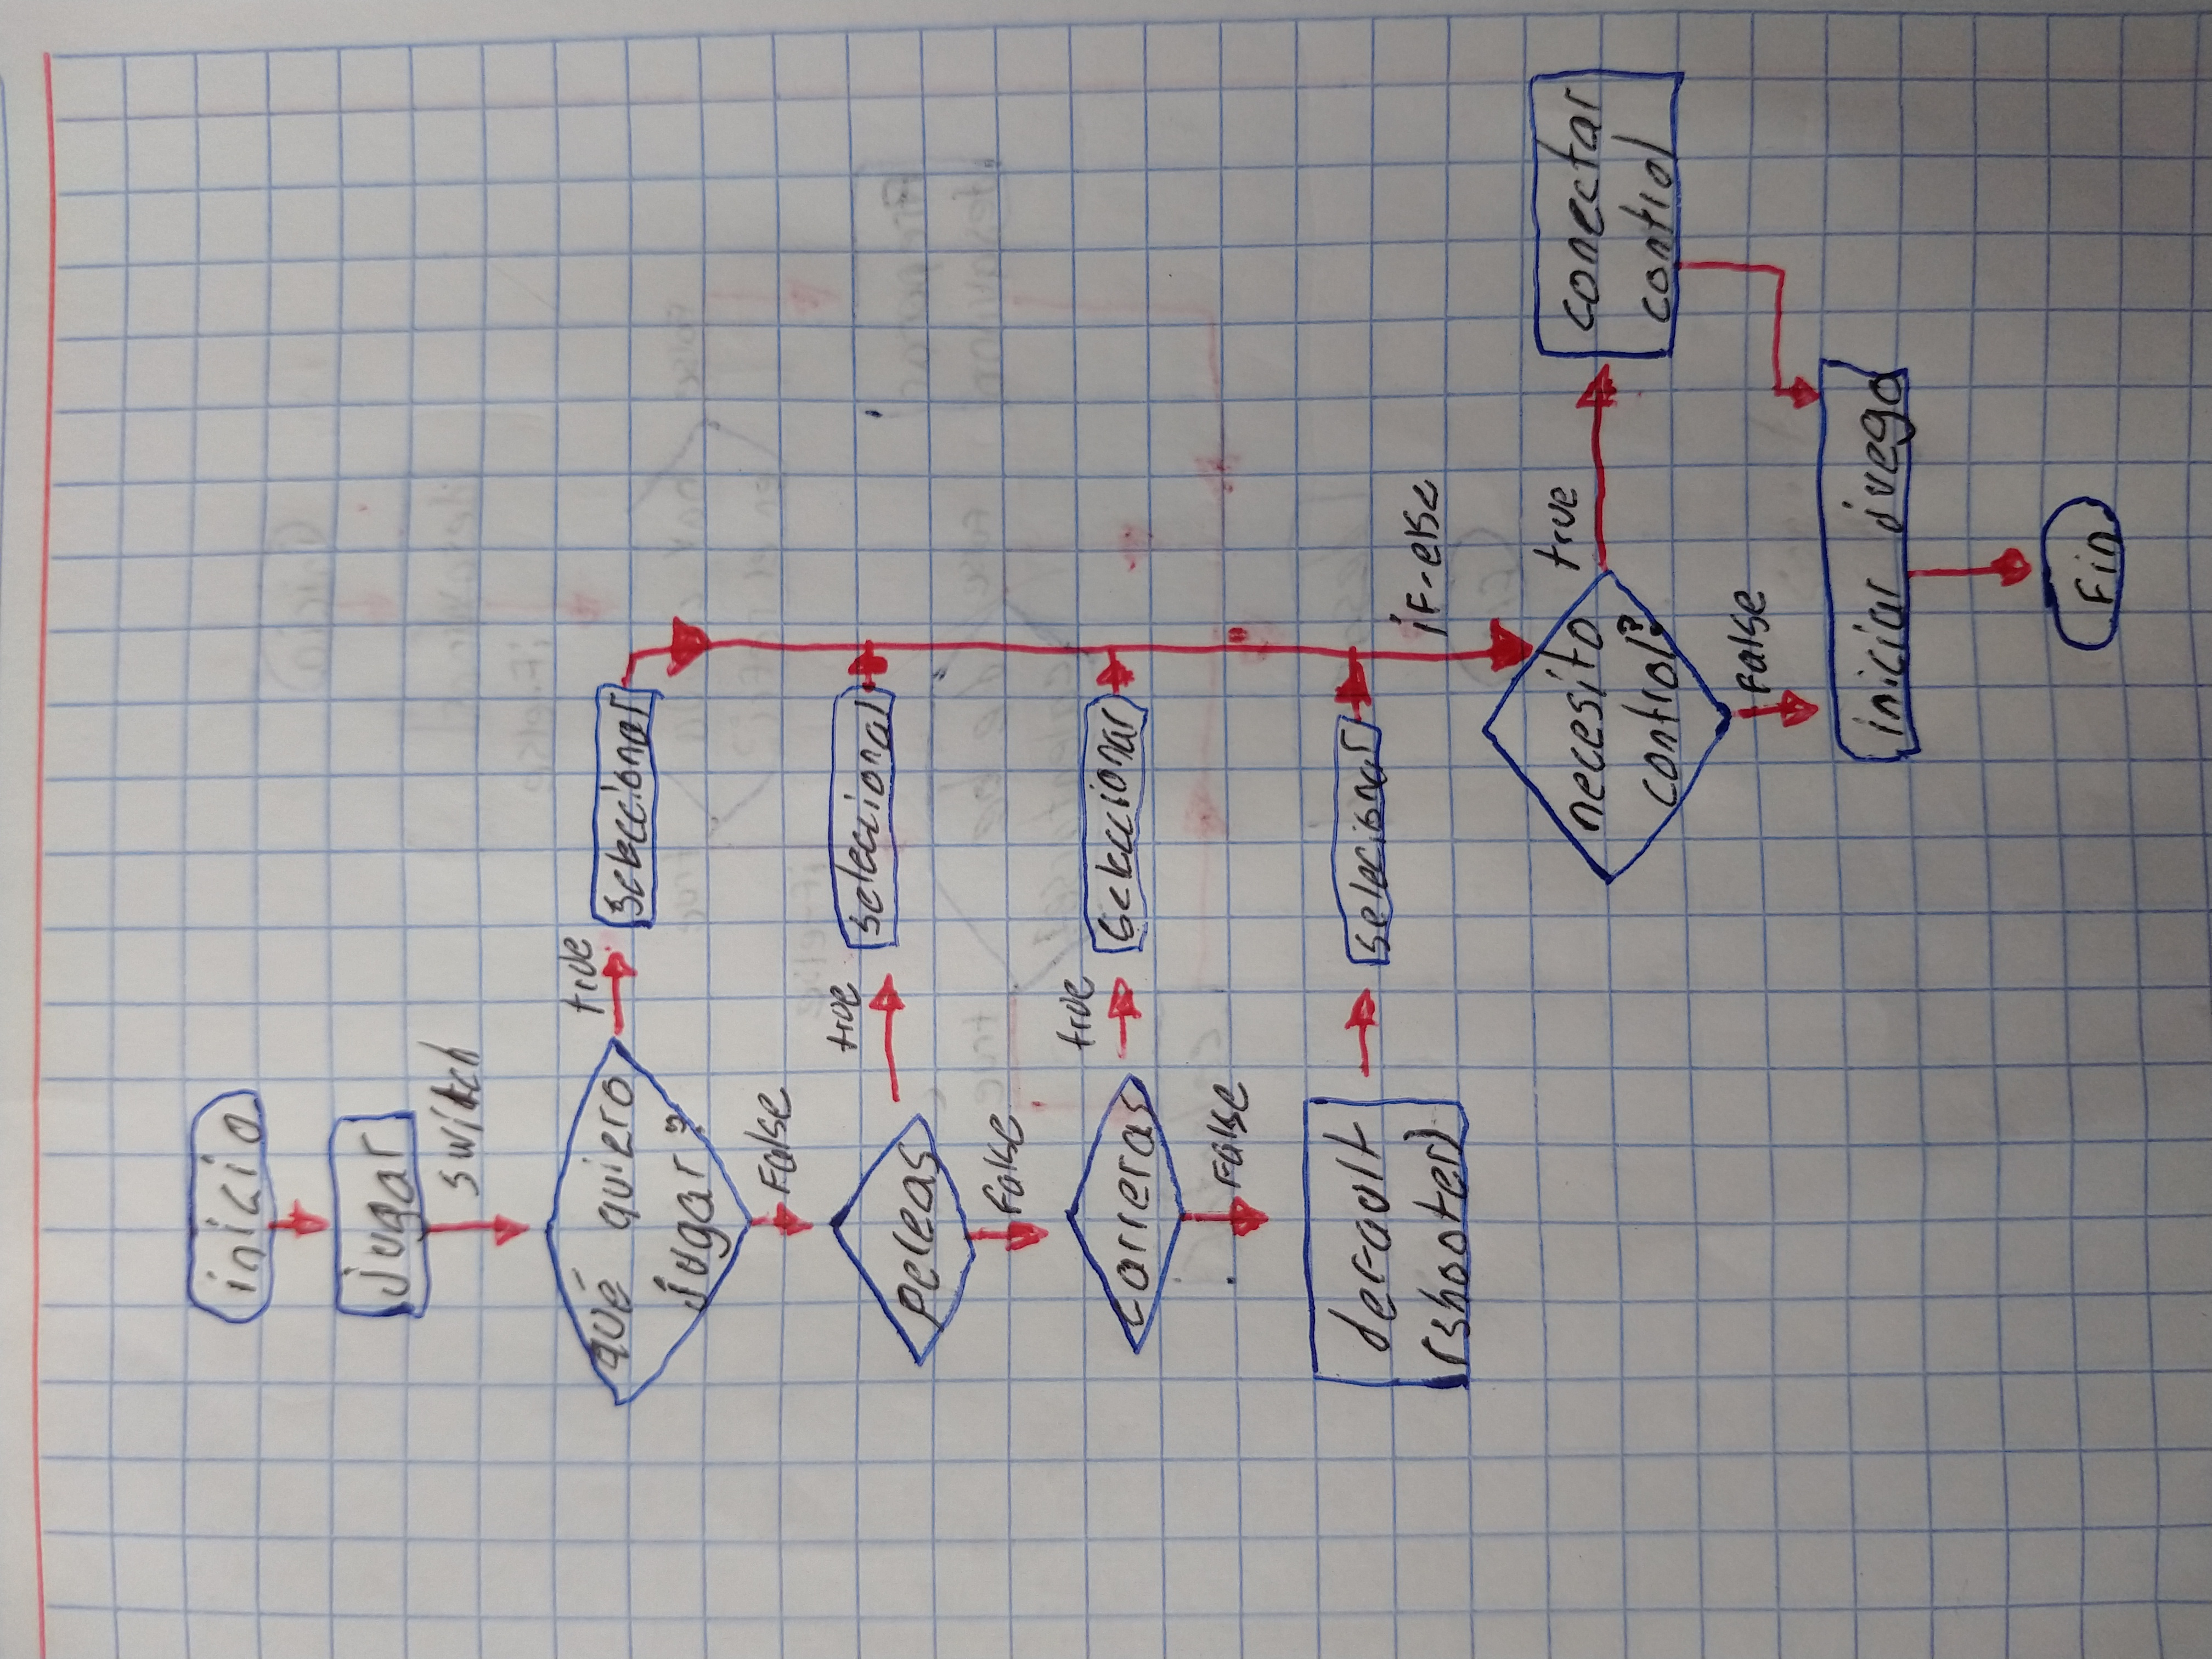 inicio
jugar
switch
qué quiero
jugar?
true
seleccionar
False
peleas
true
seleccionar
False
carreras
true
seleccionar
False
default
(shooter)
selecionar
if-else
necesito
control?
true
conectar
control
False
iniciar juego
Fin